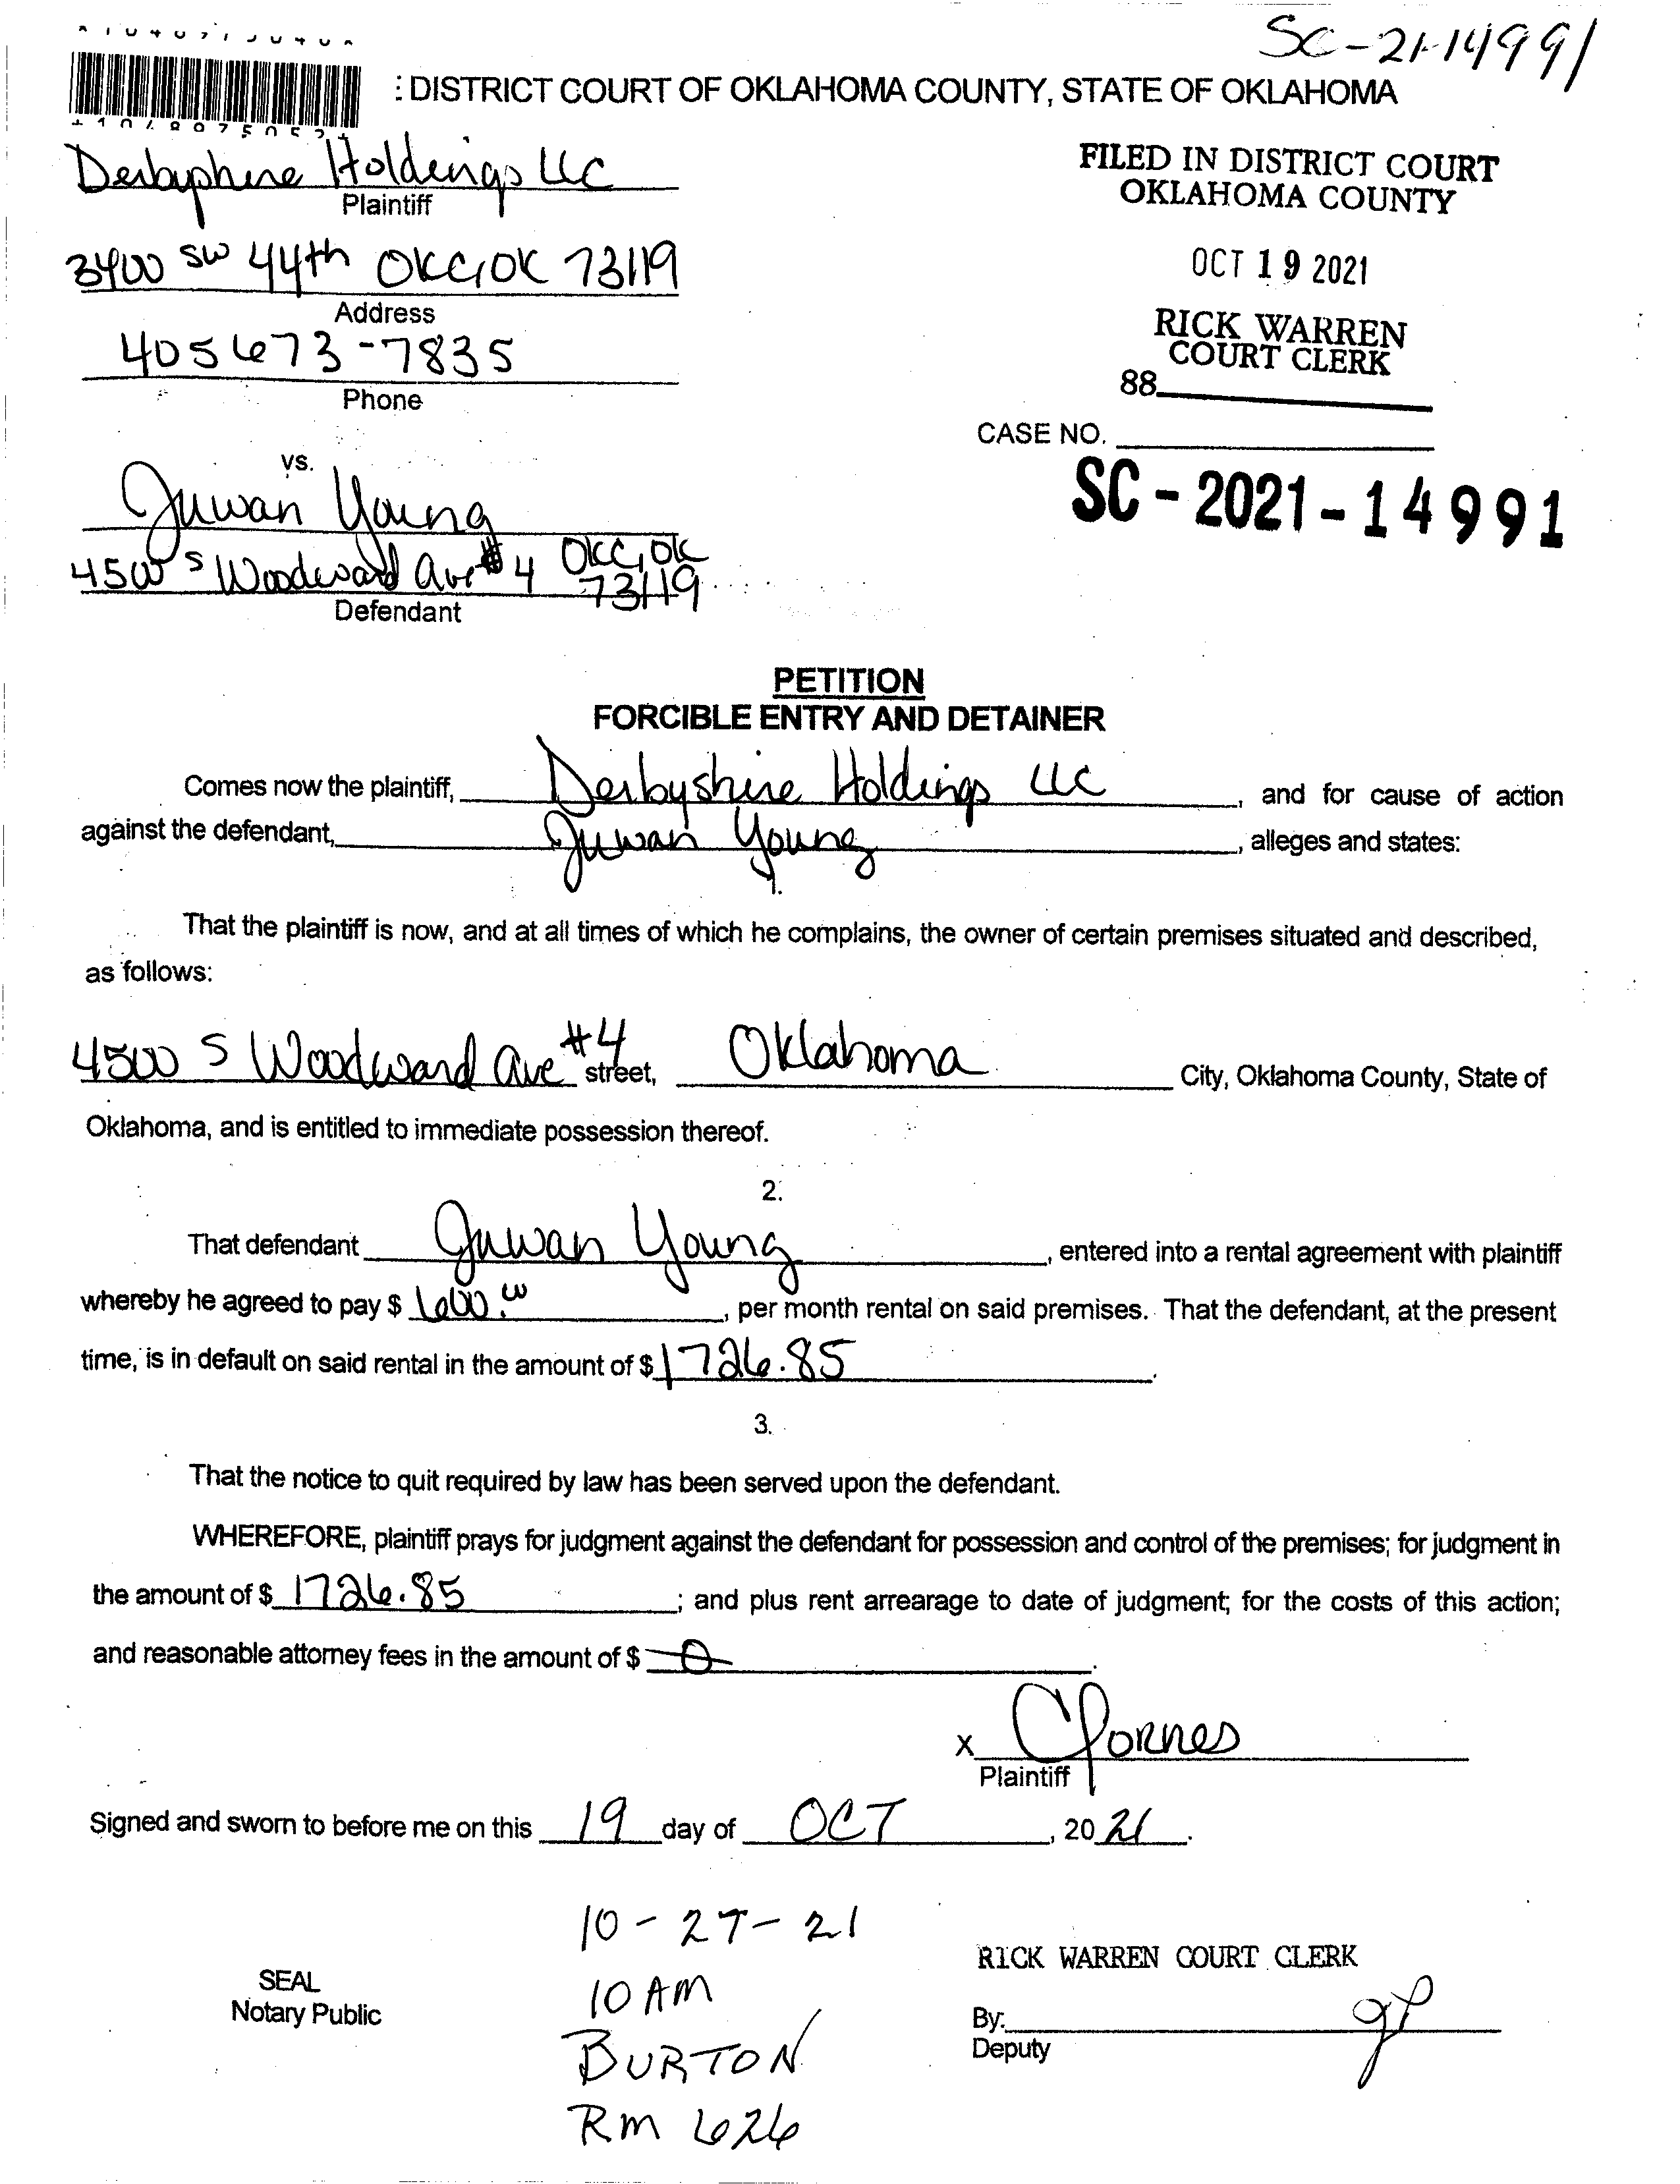 SC-21-14991
: DISTRICT COURT OF OKLAHOMA COUNTY, STATE OF OKLAHOMA
Derbyshire Holdings LLC
Plaintiff
3400 SW 44th OKC, OK 73119
Address
405 673-7835
Phone
FILED IN DISTRICT COURT
OKLAHOMA COUNTY
OCT 19 2021
RICK WARREN
COURT CLERK
88
CASE NO.
SC-2021-14991
vs.
Juwan Young
4500 S Woodward Ave #4 OKC, OK
73119
Defendant
PETITION
FORCIBLE ENTRY AND DETAINER
Comes now the plaintiff, Derbyshire Holdings LLC, and for cause of action
against the defendant, Juwan Young, alleges and states:
1.
That the plaintiff is now, and at all times of which he complains, the owner of certain premises situated and described,
as follows:
4500 S Woodward Ave #4 street, Oklahoma City, Oklahoma County, State of
Oklahoma, and is entitled to immediate possession thereof.
2.
That defendant Juwan Young, entered into a rental agreement with plaintiff
whereby he agreed to pay $ 600.00, per month rental on said premises. That the defendant, at the present
time, is in default on said rental in the amount of $ 1726.85.
3.
That the notice to quit required by law has been served upon the defendant.
WHEREFORE, plaintiff prays for judgment against the defendant for possession and control of the premises; for judgment in
the amount of $ 1726.85; and plus rent arrearage to date of judgment; for the costs of this action;
and reasonable attorney fees in the amount of $ 0.
X CFornes
Plaintiff
Signed and sworn to before me on this 19 day of OCT, 2021.
10-27-21
10 AM
BURTON
RM 626
SEAL
Notary Public
RICK WARREN COURT CLERK
By:
Deputy